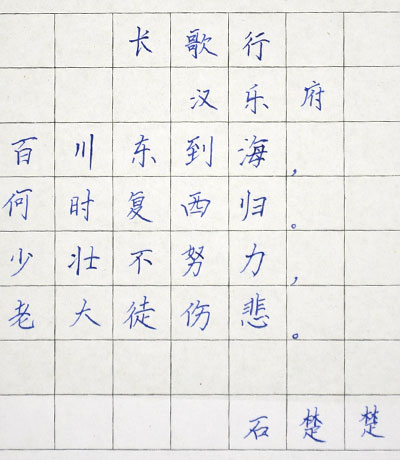 长歌行
汉乐府
百川东到海，
何时复西归。
少壮不努力，
老大徒伤悲。
石楚楚